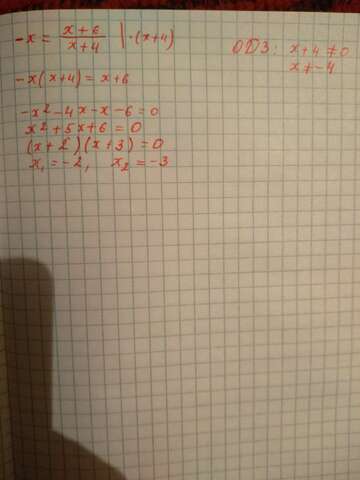 -x = (x+6)/(x+4) | ·(x+4)
ОДЗ: x+4 ≠ 0
x ≠ -4
-x(x+4) = x+6
-x² - 4x - x - 6 = 0
x² + 5x + 6 = 0
(x+2)(x+3) = 0
x₁ = -2, x₂ = -3